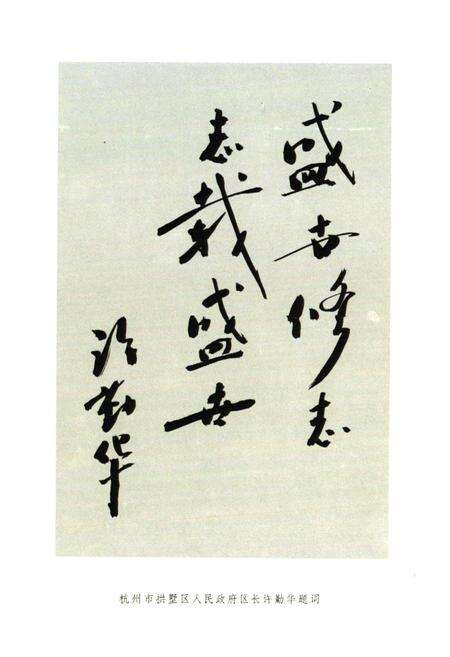 盛世修志
志载盛世
许勤华
杭州市拱墅区人民政府区长许勤华题词